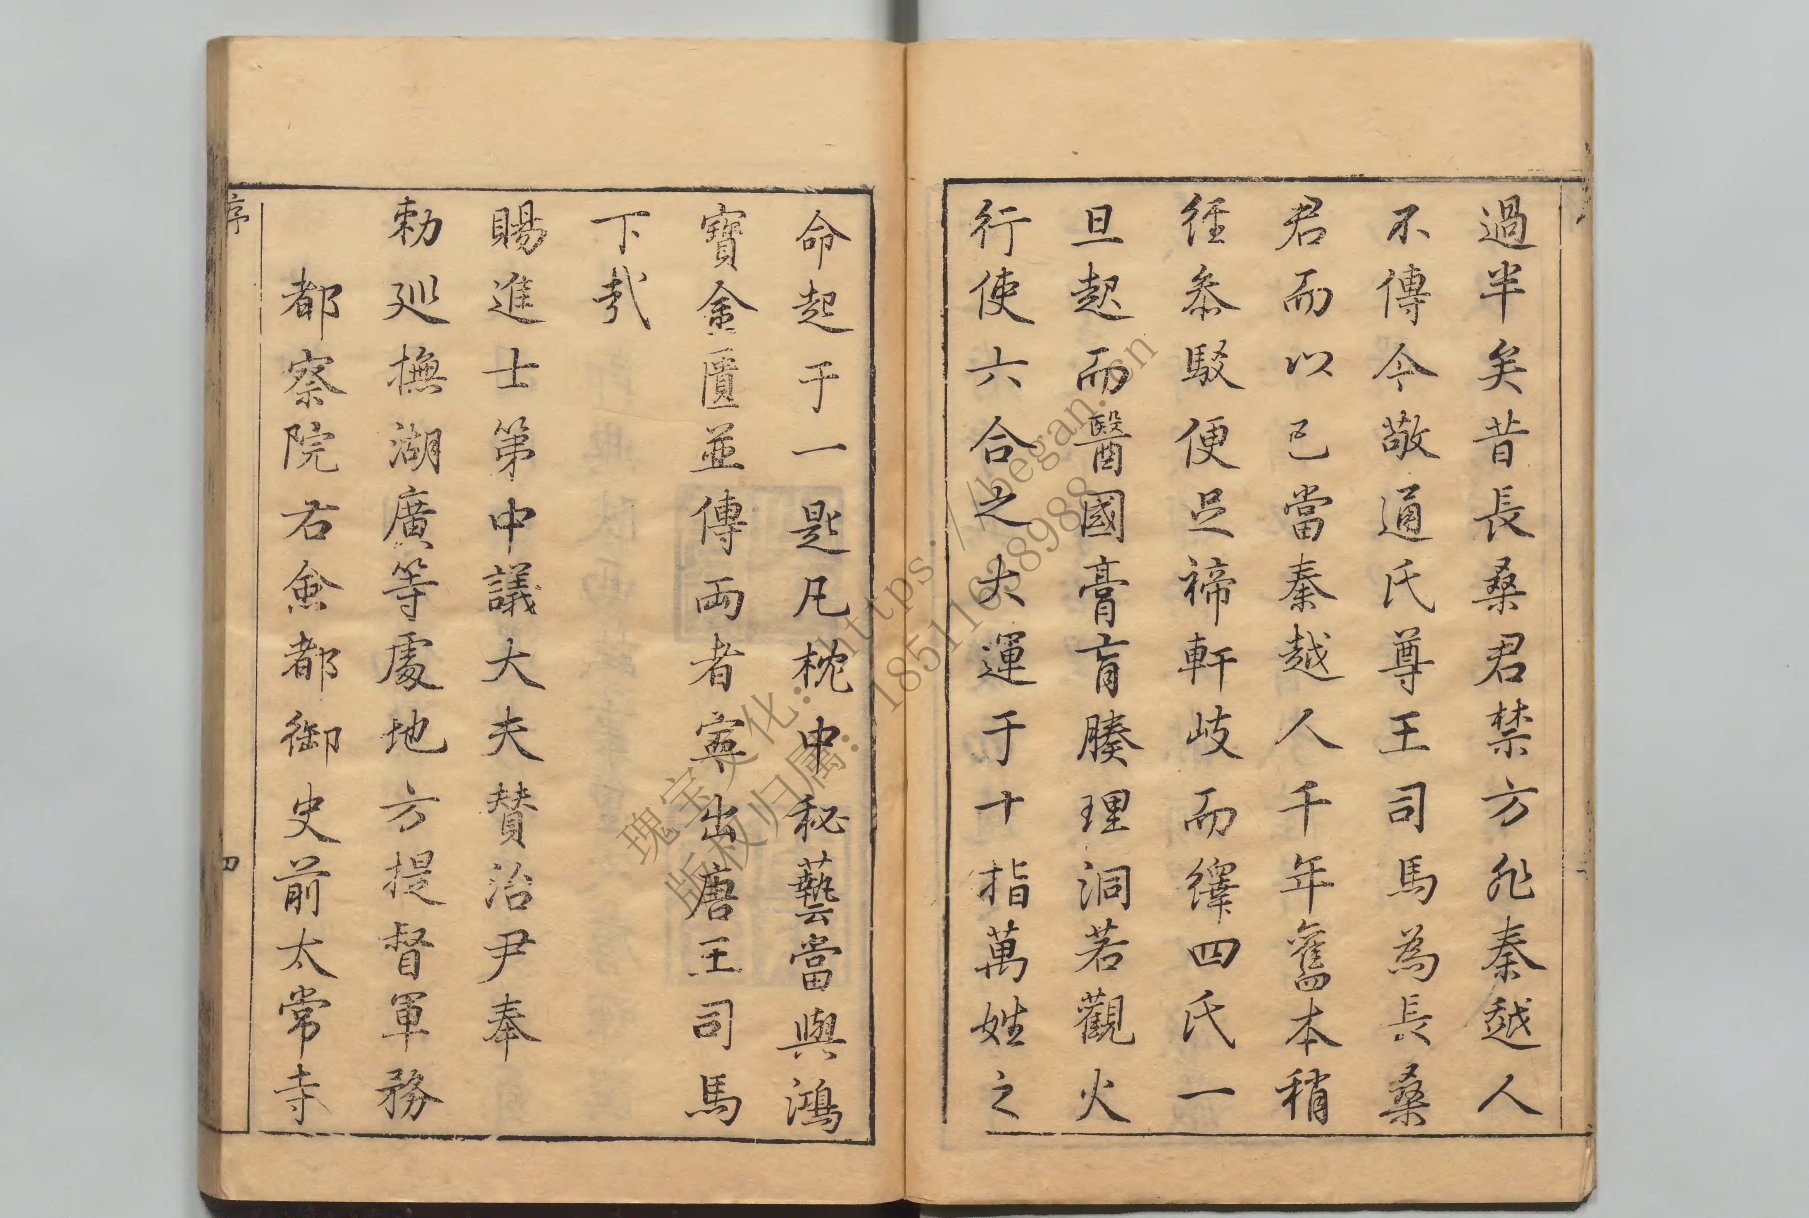 過半矣昔長桑君禁方非秦越人
不傳今敬通氏尊王司馬為長桑
君而以已當秦越人千年舊本稍
徑叅駁便足禘軒岐而繹四氏一
旦起而醫國膏肓腠理洞若觀火
行使六合之大運于十指萬姓之
命起于一匙凡枕中秘藝當與鴻
寶金匱並傳兩者寧出唐王司馬
下㢤
賜進士第中議大夫賛治尹奉
勅廵撫湖廣等處地方提督軍務
都察院右僉都御史前太常寺
序
四
瑰宝文化：https://began.cn
版权归属：18511638988